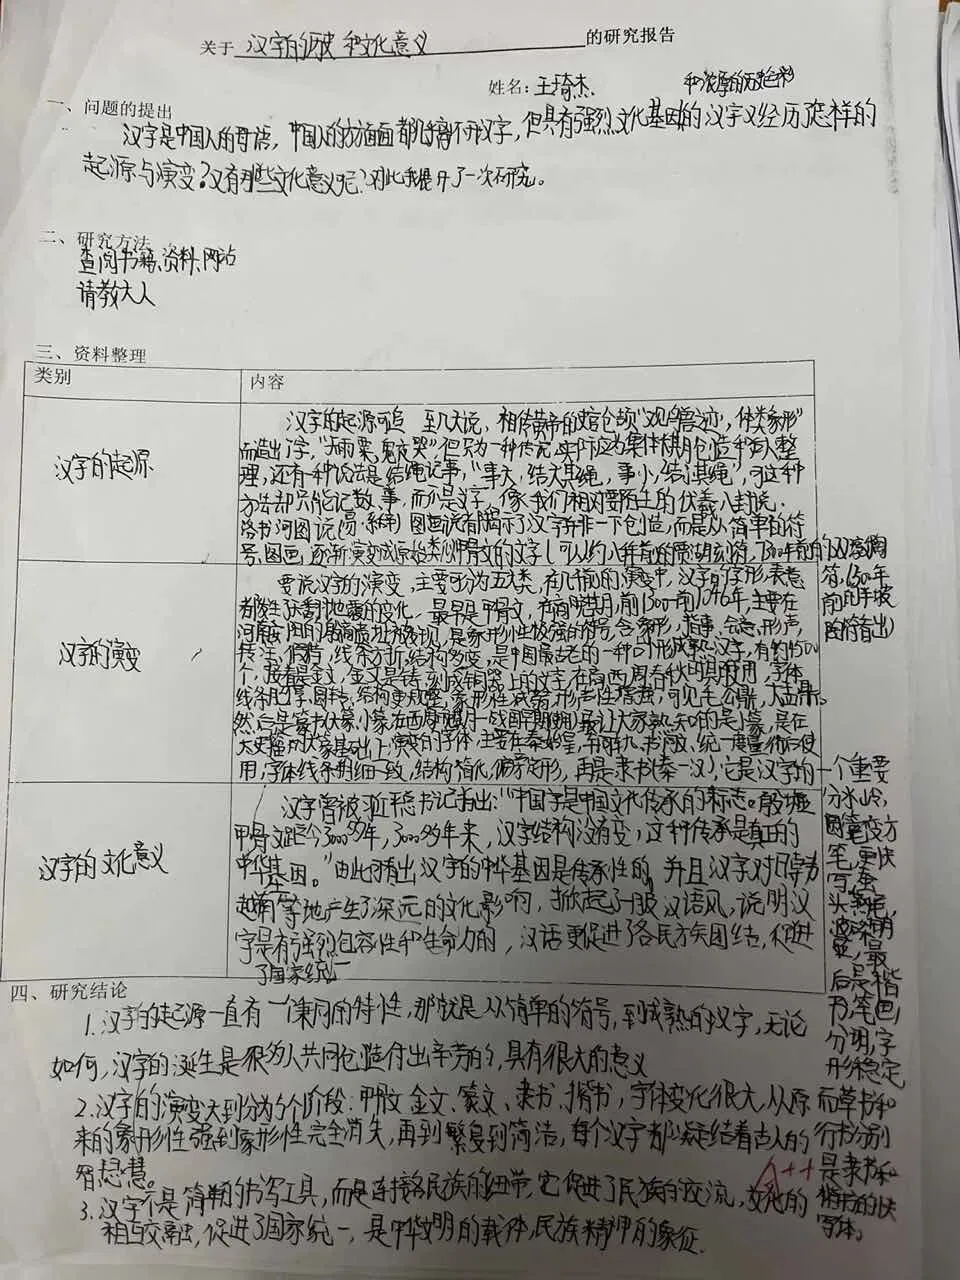 关于 汉字的历史和文化意义 的研究报告
姓名：王琦杰 和浓厚的历史色彩
一、问题的提出
汉字是中国人的母语，中国人的方方面面都离不开汉字，但具有强烈文化基因的汉字又经历了怎样的
起源与演变？又有那些文化意义呢？对此我展开了一次研究。
二、研究方法
查阅书籍、资料、网站
请教大人
三、资料整理
类别 内容
汉字的起源
汉字的起源可追 至几大说，相传黄帝的史官仓颉“观鸟兽之迹，体类象形”
而造出了字，“天雨粟，鬼夜哭”，但只为一种传说，实际应为集体长期创造和后人整
理，还有一种说法是结绳记事，“事大，结大其绳，事小，结小其绳”，可这种
方法却只能记数、事，而不是文字，像我们相对要陌生的伏羲八卦说，
洛书河图说(易·系辞) 图画说都揭示了汉字并非一下创造，而是从简单的符
号、图画，逐渐演变成原始类似甲骨文的文字
汉字的演变
要说汉字的演变，主要可分为五大类，在几千前的演变中，汉字的字形、表意
都发生了
最早是甲骨文，在商朝
前1300-前1046年，主要在
河南安阳的
被发现，是象形性较强的符号，含象形，指事，会意，形声，
转注，假借，线条方折，结构多变，是中国最古老的一种
成熟汉字，有约4500
个，接着是金文，金文是铸刻
铜器上的文字，在商、西周、春秋
使用，字体
线条肥厚、圆转，结构更规整，象形性减弱，形声性增强，可见毛公鼎，大盂鼎。
然后是篆书(大篆、小篆)
最让大家熟知的是小篆，是在
大篆基础上演变的字体，主要在秦始皇
统一度量衡后使
用，字体线条明细一致，结构简化，偏旁定形，再是隶书(秦—汉)，它是汉字的一个重要
分水岭，
方
笔，更快
写，蚕
头燕尾，
波磔明
显，最
后是楷
书，笔画
分明，字
形稳定
而草书和
行书分别
是隶书和
楷书的快
写字体。
汉字的文化意义
汉字曾被习近平总书记指出：“中国字是中国文化传承的标志。殷墟
甲骨文距今3000多年，3000多年来，汉字结构没有变，这种传承是真正的
中华基因。”由此可看出汉字的中华基因是传承性的，并且汉字对
越南等地产生了深远的文化影响，掀起了一股汉语风，说明汉
字是有强烈包容性和生命力的，汉语更促进了各民族团结，促进
了国家统一
四、研究结论
1. 汉字的起源一直有一个兼同的特性，那就是从简单的符号，到成熟的汉字，无论
如何，汉字的诞生是很多人共同创造付出辛劳的，具有很大的意义
2. 汉字的演变大致分为5个阶段：甲骨文、金文、篆文、隶书、楷书，字体变化很大，从原
来的象形性强到象形性完全消失，再到繁复到简洁，每个汉字都凝结着古人的
智慧。
3. 汉字不是简单的书写工具，而是连接各民族的纽带，它促进了民族的交流，文化的
相互交融，促进了国家统一，是中华文明的载体，民族精神的象征。
A++